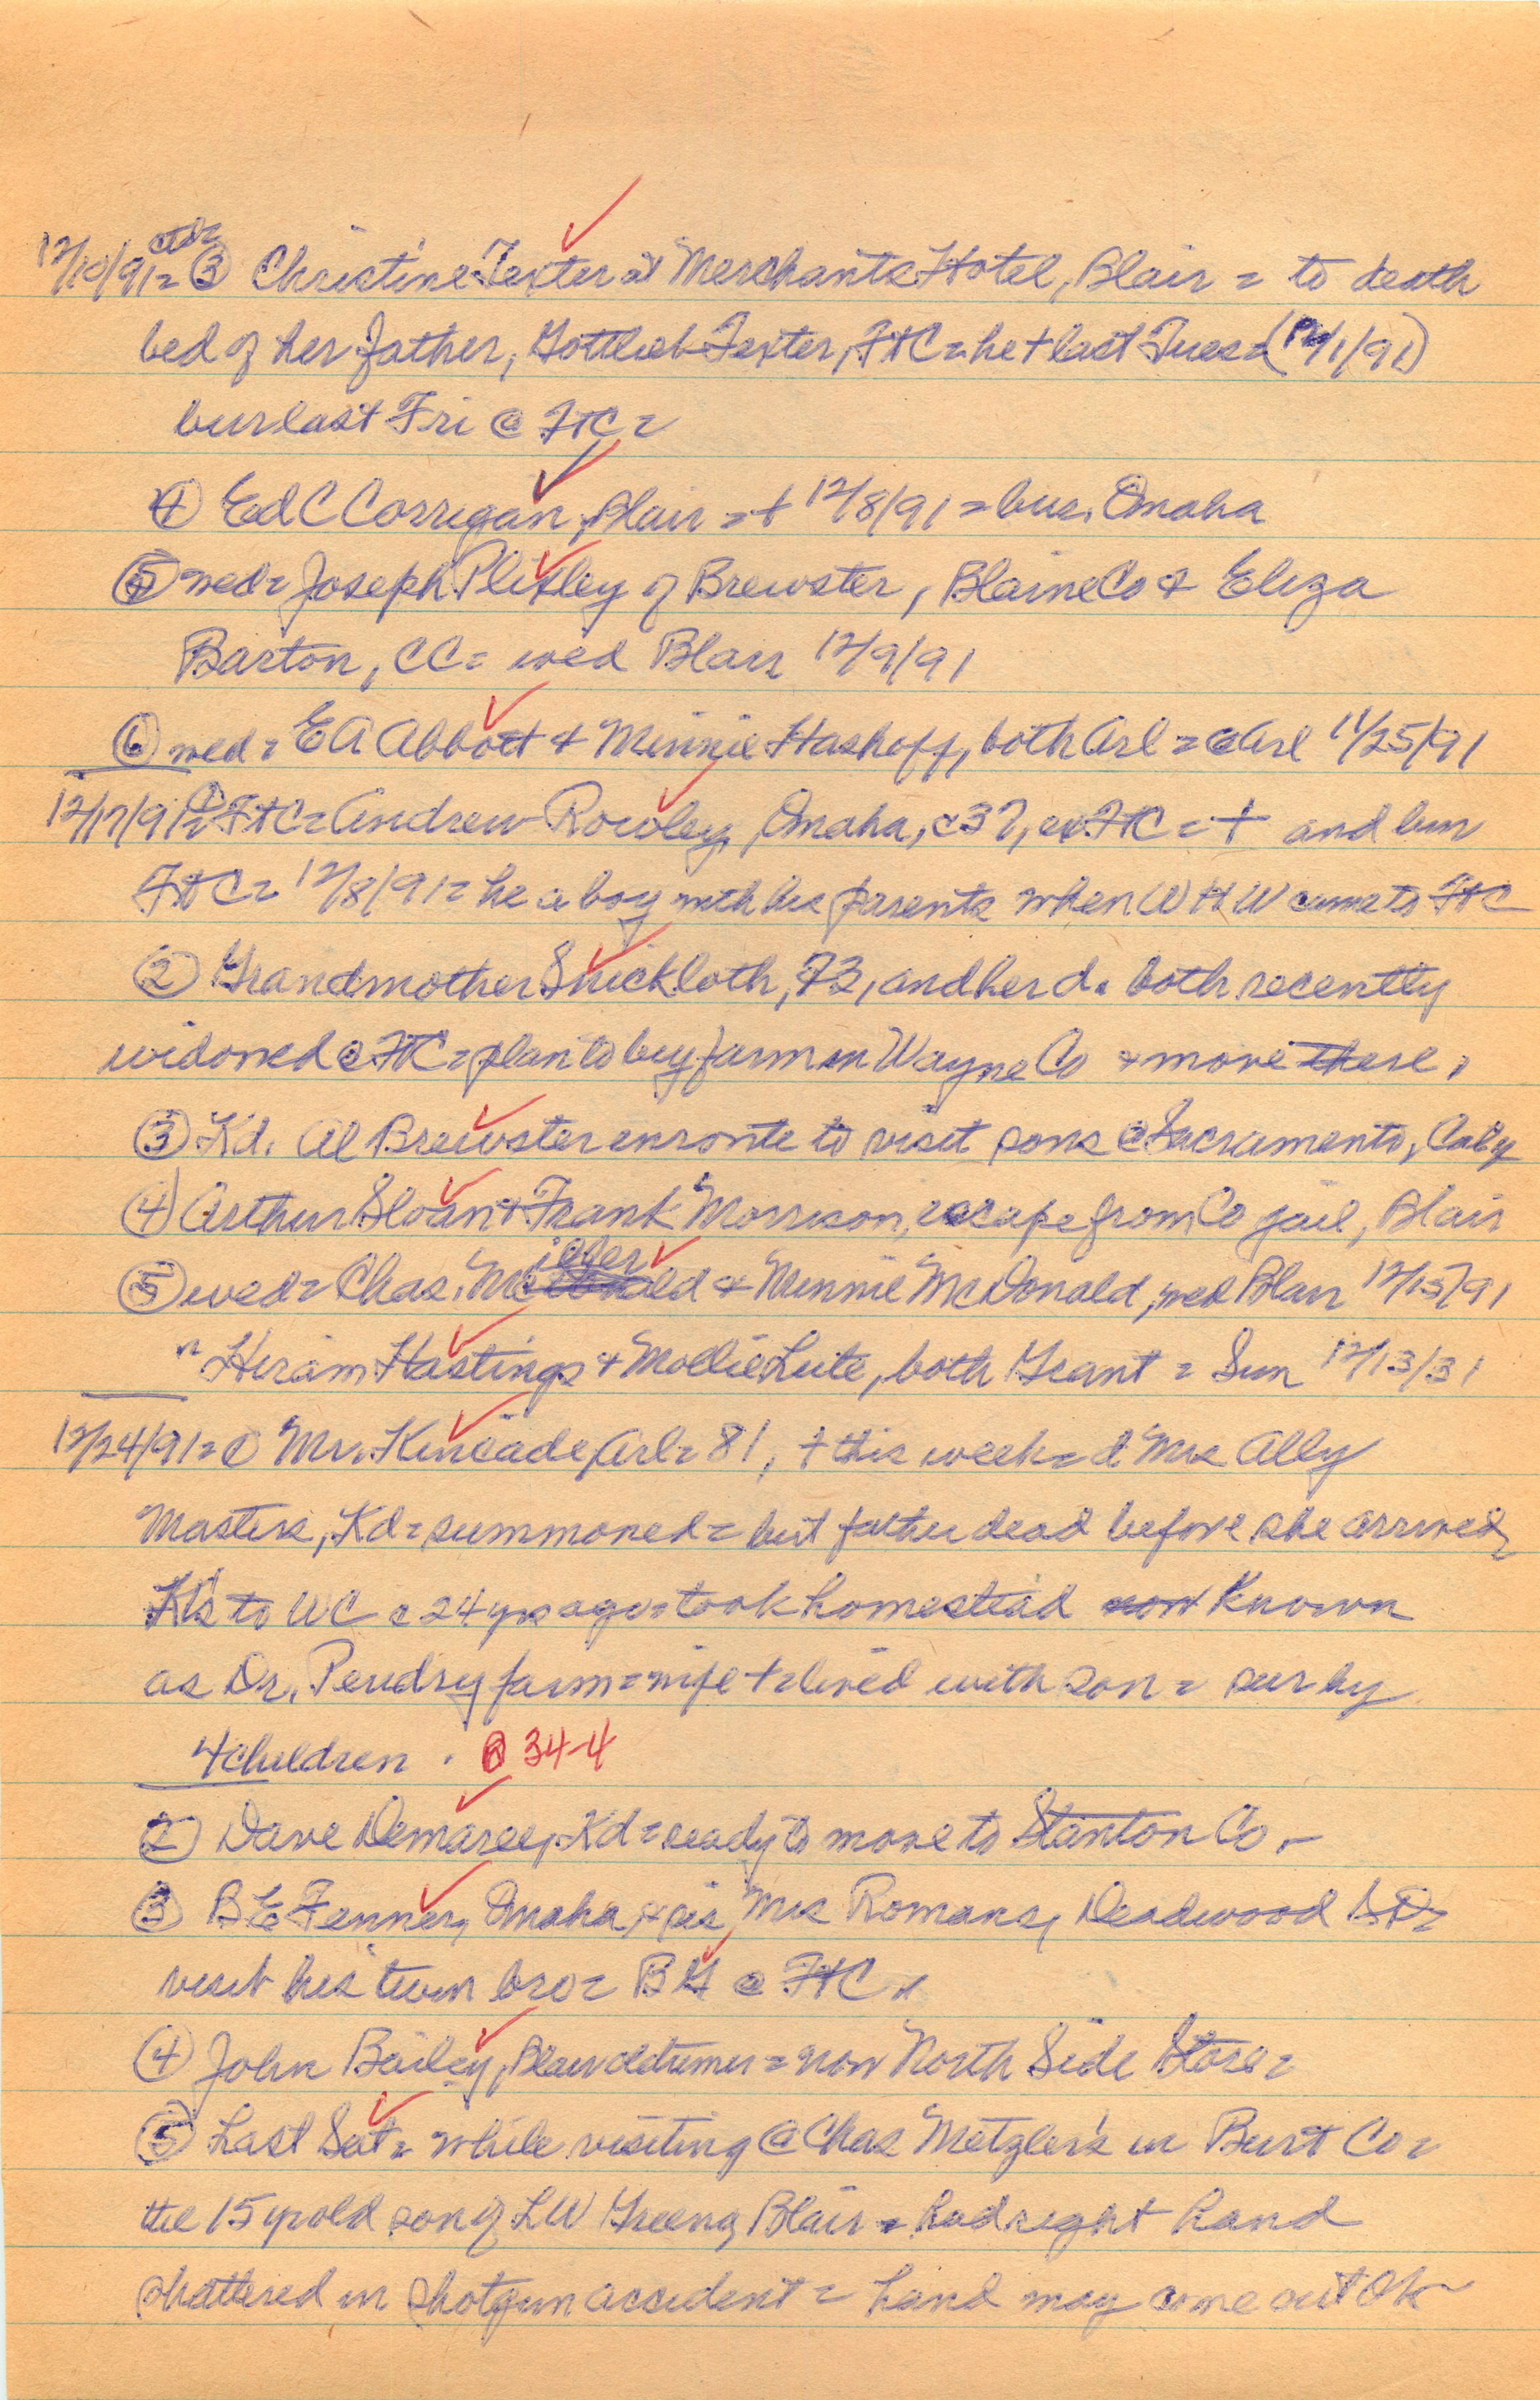 12/10/91= ctd= ③ Christine Fexter at Merchants Hotel, Blair = to death
bed of her father, Gottlieb Fexter, FtC = he + last Tues = (12/1/91)
bur last Fri @ FtC =
④ Ed C Corrigan, Blair = + 12/8/91 = bur. Omaha
⑤ wed = Joseph Plitley of Brewster, Blaine Co & Eliza
Barton, CC = wed Blair 12/9/91
⑥ wed = E A Abbott & Minnie Hashoff, both Arl = @ Arl 11/25/91
12/17/91= ① FtC = Andrew Rowley, Omaha, c37, ex FtC = + and bur
FtC = 12/8/91 = he a boy with his parents when W H W came to FtC
② Grandmother Snickloth, 73, and her d. both recently
widowed @ FtC = plan to buy farm in Wayne Co & move there.
③ Kd. Al Brewster enroute to visit sons @ Sacramento, Calif
④ Arthur Sloan & Frank Morrison, escape from Co jail, Blair
⑤ wed = Chas. Miller & Minnie McDonald, wed Blair 12/13/91
" Hiram Hastings & Mollie Leite, both Grant = Sun 12/13/31
12/24/91= ① Mr. Kincade, Arl = 81, + this week = d Mrs Ally
Masters, Kd = summoned = but father dead before she arrived,
K's to WC c 24 yrs ago = took homestead now known
as Dr. Pendry farm = wife + = lived with son = sur by
4 children . 34-4
② Dave Demaree, Kd = ready to move to Stanton Co. -
③ B E Fenner, Omaha, & sis Mrs Romans, Deadwood SD =
visit his twin bro = B G @ FtC
④ John Bailey, Blair oldtimer = now North Side Store =
⑤ Last Sat = while visiting @ Chas Metzler's in Burt Co =
the 15 yr old son of L W Greeng Blair = had right hand
shattered in shotgun accident = hand may come out OK